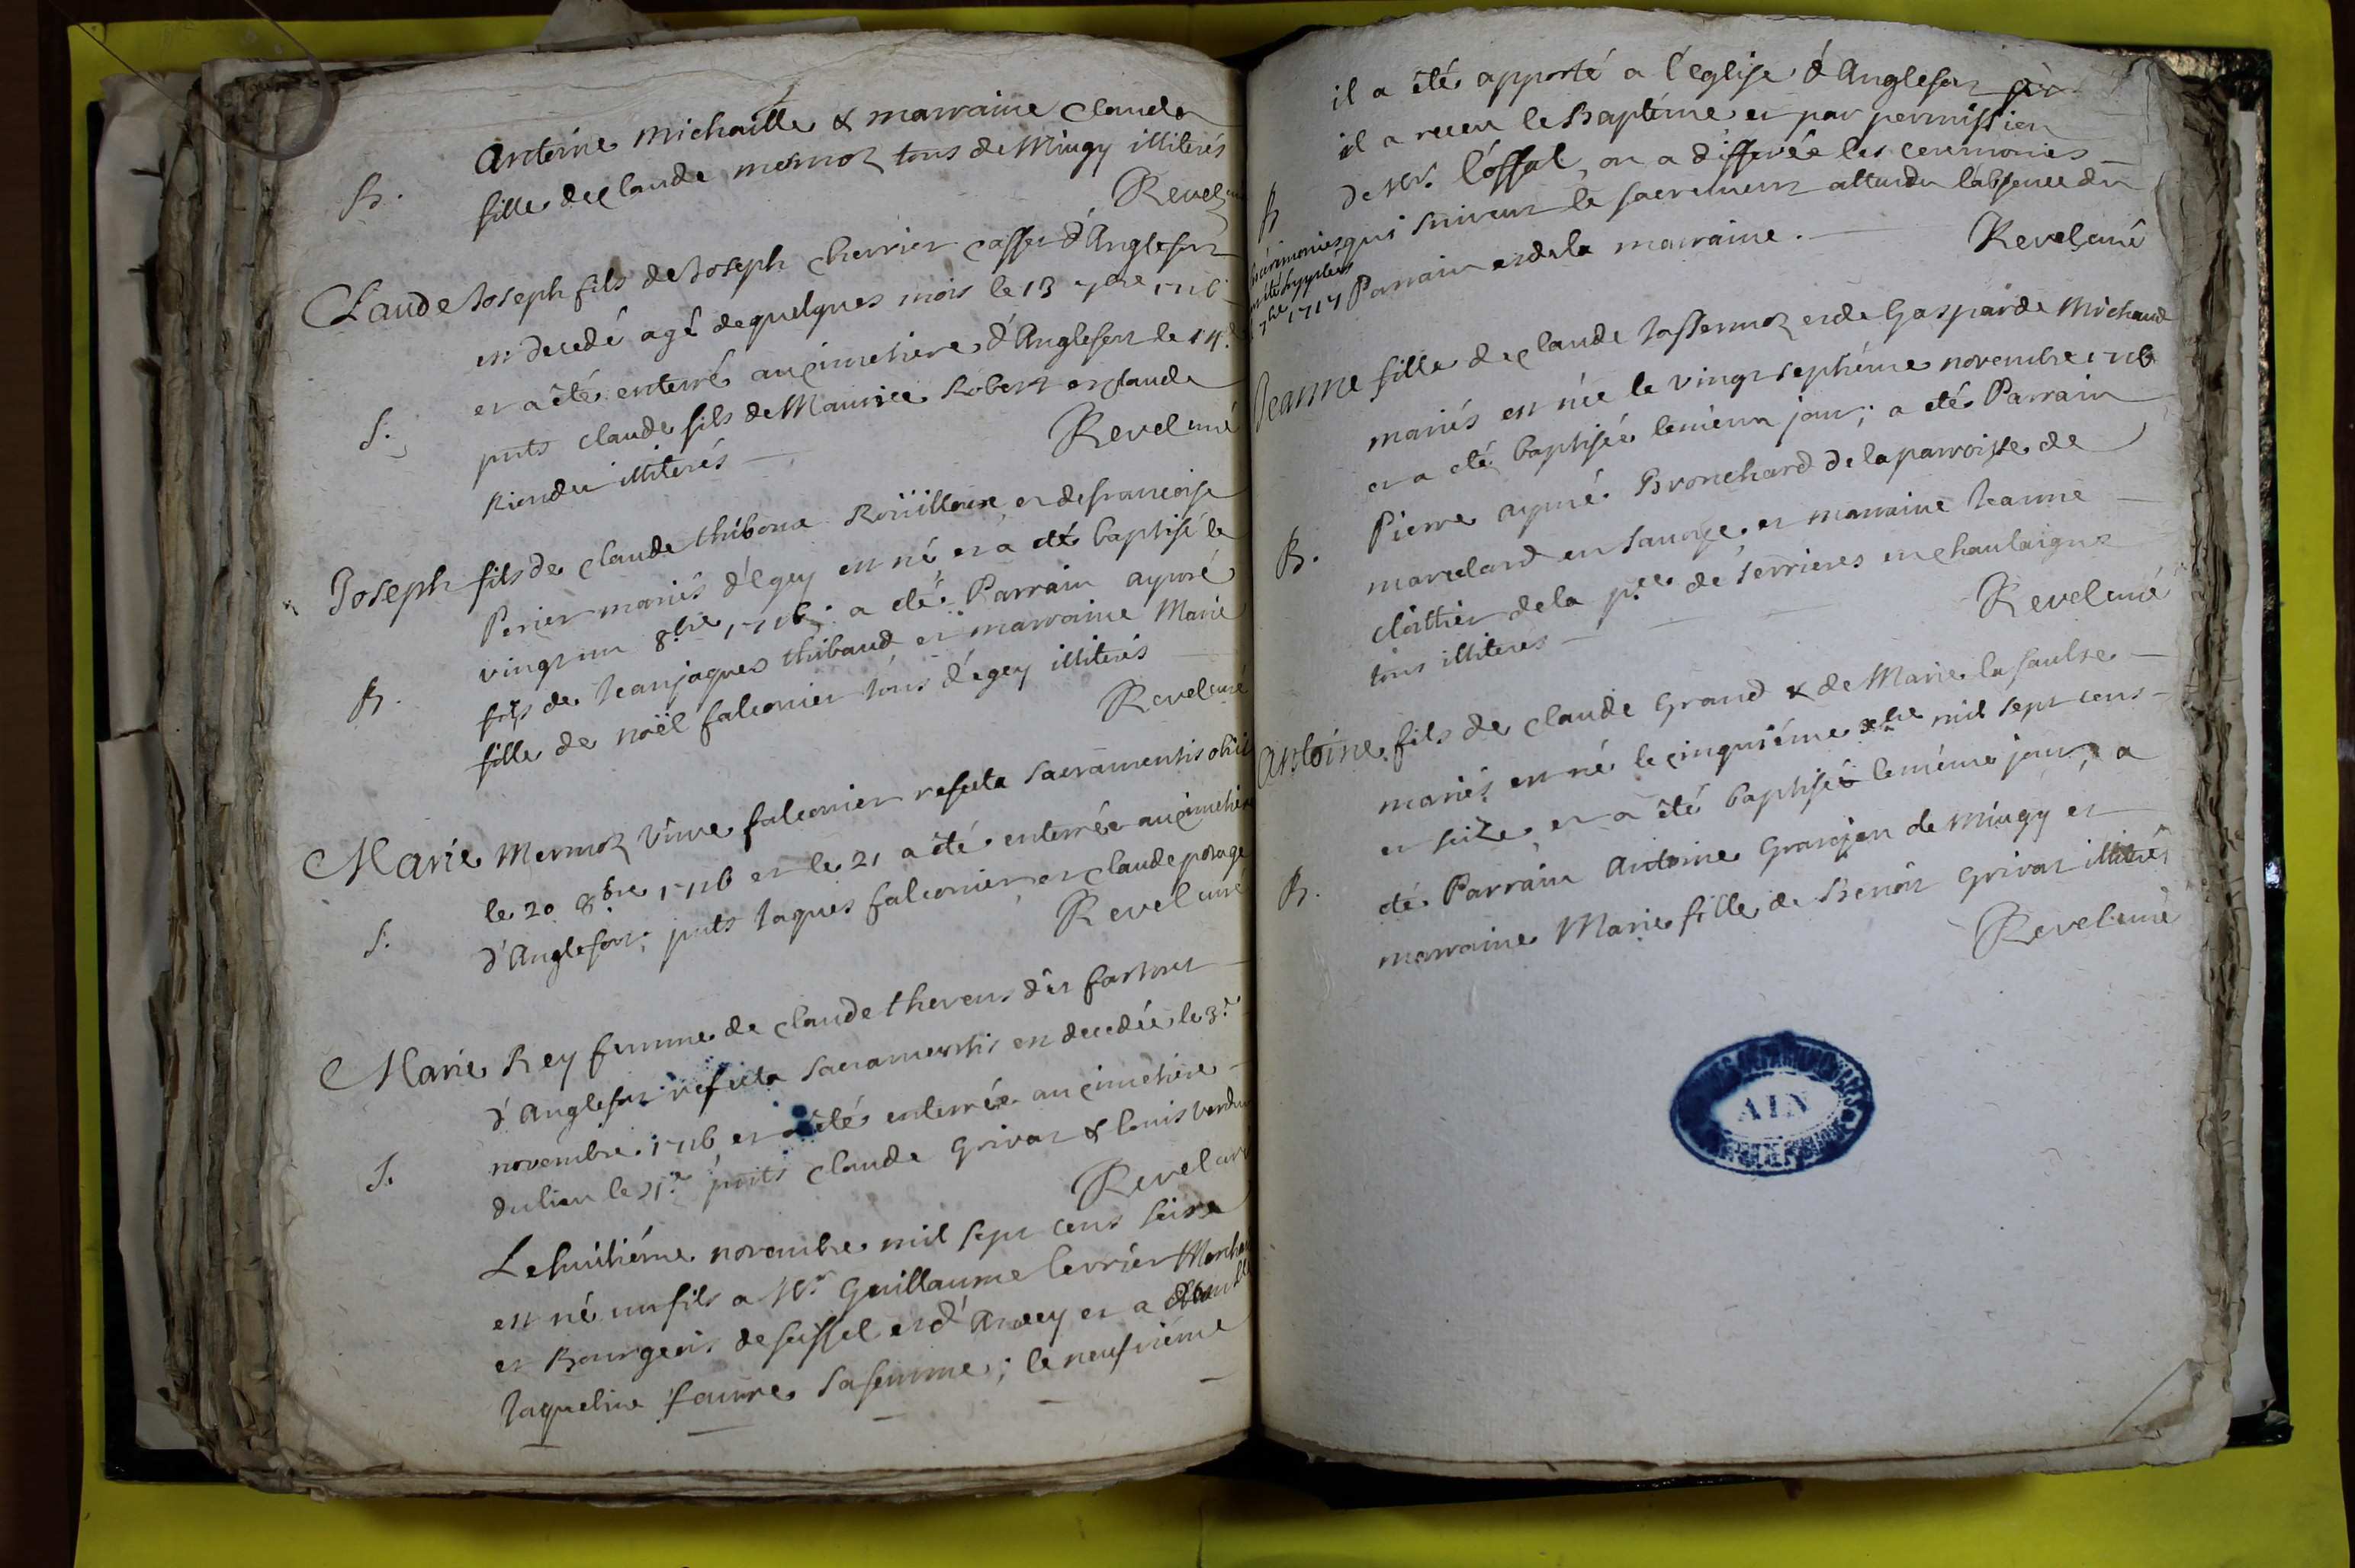 Antoine Michaille & marraine Claude
B. fille de Claude mermoz tous de Mingy illiterés
Revel curé
Claude Joseph fils de Joseph Cherrier casset d'Anglefort
est decedé agé de quelques mois le 13 7bre 1716
et a été enterré au çimetiere d'Anglefort le 14.e
S. pnts Claude fils de Maurice Robert et Claude
illiterés
Revel curé
Joseph fils de Claude thiboux Roüilloux et de françoise
Perier mariés d'Egey est né et a eté baptisé le
vingt un 8.bre 1716. a eté Parrain aymé
B. fils de Jeanjaques thibaud et marraine Marie
fille de noël falconier tous d'égey illiterés
Revel curé
Marie Mermoz vüve falconier refecta sacramentis obiit
le 20 8.bre 1716 et le 21 a été enterrée au çimetiere
S. d'Anglefort; pnts Jaques falconier et Claude porage
Revel curé
Marie Rey femme de Claude thevens dit
d'Anglefort refecta sacramentis est decedée le 3.e
novembre 1716 et a été enterrée au çimetiere
S. du lieu le pnts Claude Grivat & louis
Revel curé
Le huitiéme novembre mil sept cens seize
est né un fils a Mr Guillaume Perrier Marchand
et Bourgeois de seissel et d'Anecy et a
Jaqueline faure sa femme; le neufviéme
il a été apporté a l'eglise d'Anglefort où
il a receu le Baptéme et par permission
B de Mr. l'offal, on a differé les ceremonies
qui suivent le sacrement attendu l'absence du
Parrain et de la marraine.
Revel curé
Cérémonies
supplées
7bre 1717
Jeanne fille de Claude Jassermoz et de Gasparde Michaud
mariés est née le vingt septiéme novembre 1716
et a eté baptisée leméme jour; a eté Parrain
B. Pierre aymé Bronchard de la parroisse de
en Savoye et marraine Jeanne
cloîttier de la p.sse de serrieres en chautaigne
tous illiteres
Revel curé
Antoine fils de Claude Grand & de Marie la saulse
mariés est né le çinquiéme xbre mil sept cens
et seize, et a été baptisé leméme jour, a
B. eté Parrain Antoine Granjon de Mingy et
marraine Marie fille de Benoît Grivat illiterés
Revel curé
AIN